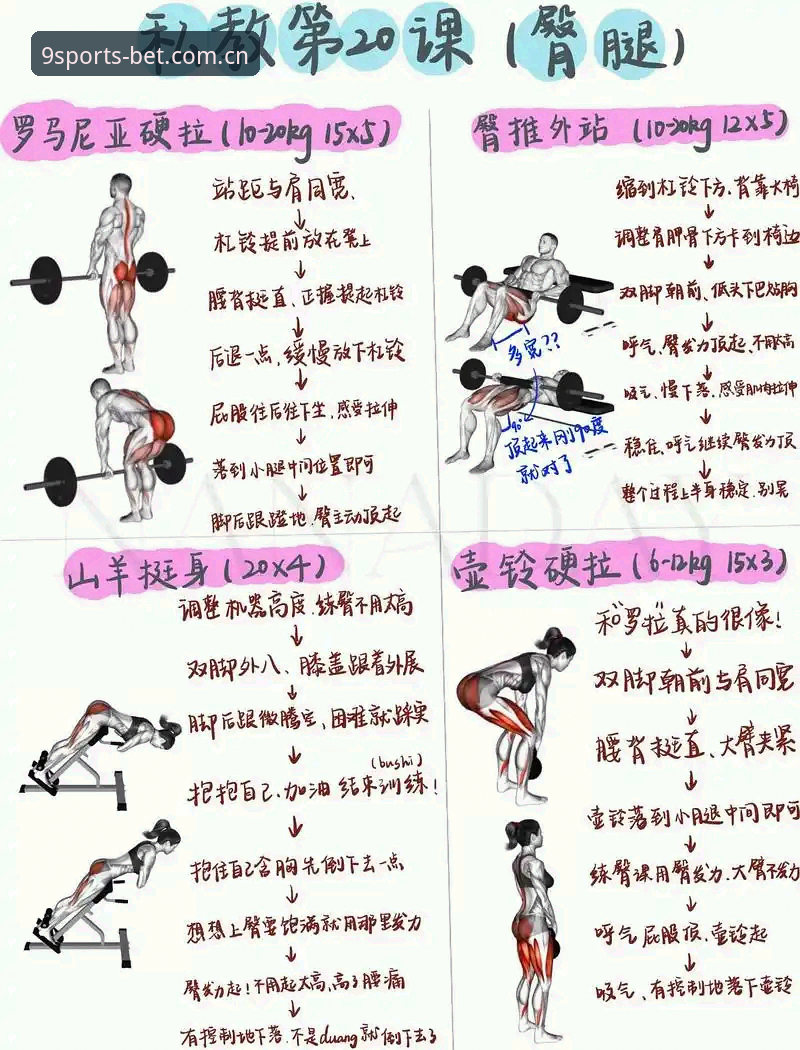 私教第20课(臀腿)
9sports-bet.com.cn
罗马尼亚硬拉(10-20kg 15x5)
站距与肩同宽、
↓
杠铃提前放在凳上
↓
腰背挺直、正握提起杠铃
↓
后退一点,缓慢放下杠铃
↓
屁股往后往下坐,感受拉伸
↓
落到小腿中间位置即可
↓
脚后跟蹬地、臀主动顶起
臀推外站(10-20kg 12x5)
缩到杠铃下方、背靠大椅
↓
调整肩胛骨下方卡到椅边
↓
双脚朝前、低头下巴贴胸
↓
呼气、臀发力顶起、不用太高
↓
吸气、慢下落、感受肌肉拉伸
↓
稳住、呼气继续臀发力顶
↓
整个过程上半身稳定、别晃
多宽??
90°
顶起来刚90度
就对了
山羊挺身(20x4)
调整机器高度、练臀不用太高
↓
双脚外八、膝盖跟着外展
↓
脚后跟微腾空、困难就踩实
↓
(bushi)
抱抱自己、加油 结束训练!
↓
抱住自己含胸先倒下去一点
↓
想想上臀要饱满就用那里发力
↓
臀发力起!不用起太高,高了腰痛
↓
有控制地下落、不是duang就倒下去了
壶铃硬拉(6-12kg 15x3)
和"罗拉"真的很像!
↓
双脚朝前与肩同宽
↓
腰背挺直、大臂夹紧
↓
壶铃落到小腿中间即可
↓
练臀课用臀发力、大臂不发力
↓
呼气 屁股顶、壶铃起
↓
吸气、有控制地落下壶铃
NANADAY